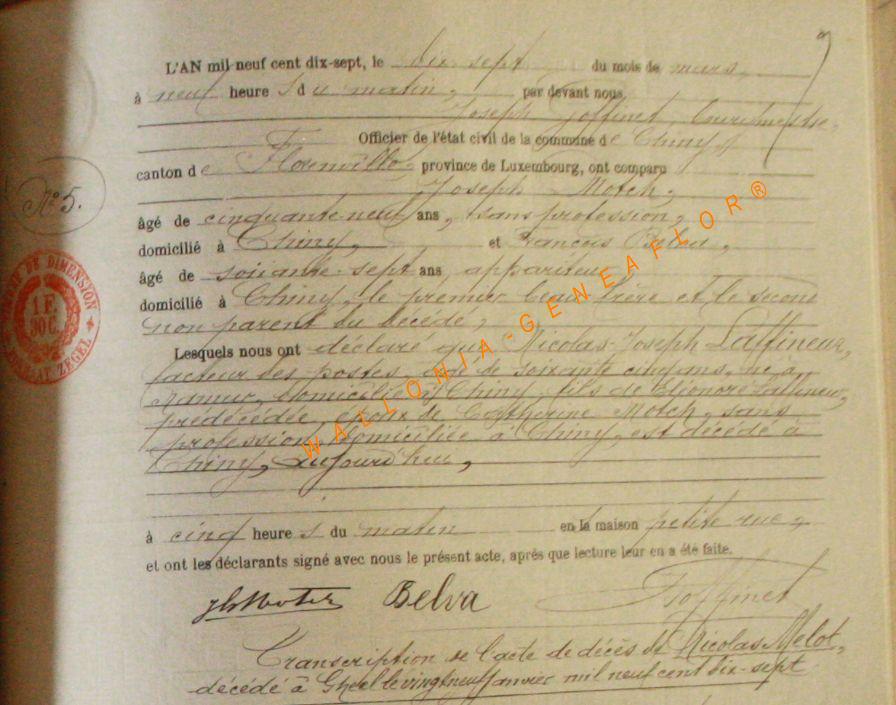 L'AN mil neuf cent dix-sept, le dix-sept du mois de mars,
à neuf heure s du matin, par devant nous,
Joseph Goffinet, bourgmestre,
Officier de l'état civil de la commune de Chiny,
canton de Florenville, province de Luxembourg, ont comparu
Joseph Motch,
N° 5.
âgé de cinquante-neuf ans, sans profession,
domicilié à Chiny, et François Belva,
âgé de soixante-sept ans, appariteur,
domicilié à Chiny, le premier beau-frère et le second
non parent du décédé,
Lesquels nous ont déclaré que Nicolas-Joseph Laffineur,
facteur des postes, âgé de soixante cinq ans, né à
Namur, domicilié à Chiny, fils de Eléonore Laffineur,
prédécédée, époux de Catherine Motch, sans
profession, domiciliée à Chiny, est décédé à
Chiny, aujourd'hui,
à cinq heure s du matin en la maison petite rue,
et ont les déclarants signé avec nous le présent acte, après que lecture leur en a été faite.
Belva Goffinet
Transcription de l'acte de décès de Nicolas Melot,
décédé à Gheel le vingt neuf janvier mil neuf cent dix-sept
TIMBRE DE DIMENSION
1 F.
30 C.
FORMAAT ZEGEL
WALLONIA-GENEAFLOR®